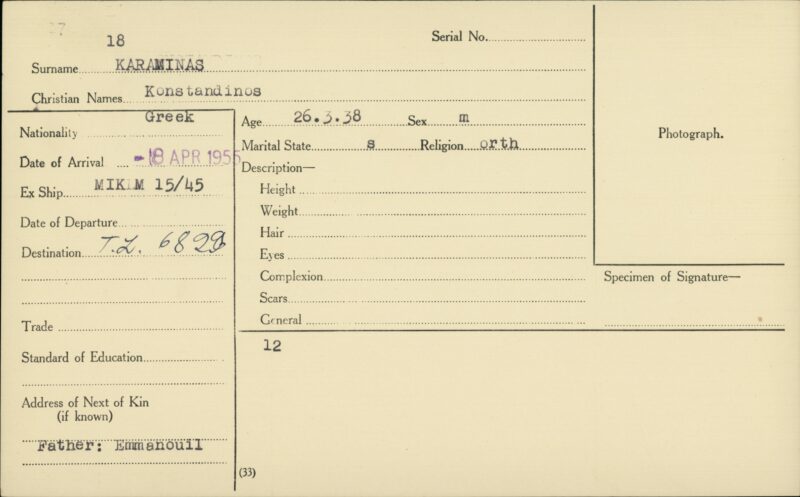 18
Serial No.
Surname KARAMINAS
Christian Names Konstandinos
Greek
Nationality
Date of Arrival 18 APR 1955
Ex Ship MIKIM 15/45
Date of Departure
Destination T.L. 6829
Trade
Standard of Education
Address of Next of Kin
(if known)
Father: Emmanouil
Age 26.3.38 Sex m
Marital State s Religion orth
Description—
Height
Weight
Hair
Eyes
Complexion
Scars
General
12
(33)
Photograph.
Specimen of Signature—